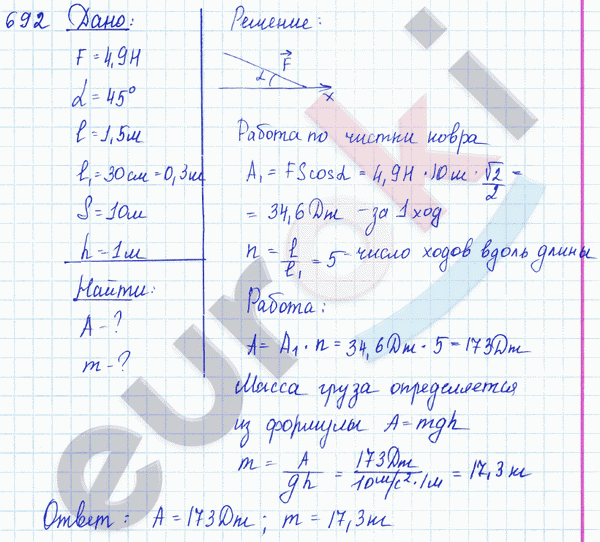 692 Дано:
F = 4,9Н
α = 45°
ℓ = 1,5м
ℓ₁ = 30см = 0,3м
S = 10м
h = 1м
Найти:
A - ?
m - ?
Решение:
F
α
x
Работа по чистки ковра
A₁ = FScosα = 4,9Н · 10м · √2/2 =
= 34,6Дж - за 1 ход
n = ℓ/ℓ₁ = 5 - число ходов вдоль длины
Работа:
A = A₁ · n = 34,6Дж · 5 = 173Дж
Масса груза определяется
из формулы A = mgh
m = A/gh = 173Дж/10м/с² · 1м = 17,3кг
Ответ: A = 173Дж; m = 17,3кг
euroki